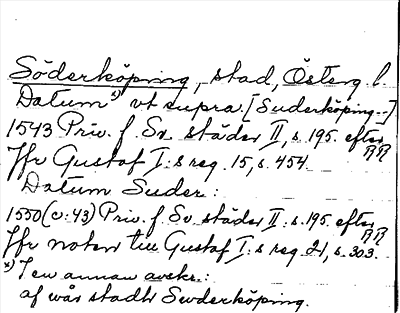 Söderköping, stad, Österg l.
Datum x) vt supra. [Suderköping--]
1543 Priv. f. Sv. städer II, s. 195. efter RR
Jfr Gustaf I:s reg. 15, s. 454.
Datum Suder:
1550 (o: 43) Priv. f. Sv. städer II: s. 195. efter RR
Jfr noten till Gustaf I:s reg 21, s. 303.
x) I en annan avskr.:
af wår stadh Swderköping.